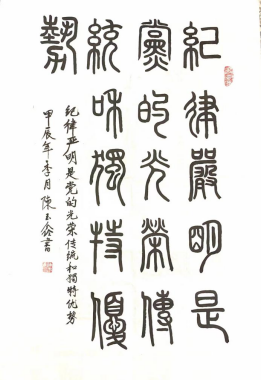 紀律嚴明是
黨的光榮傳
統和獨特優
勢
纪律严明是党的光荣传统和独特优势
甲辰年季月陈玉
書